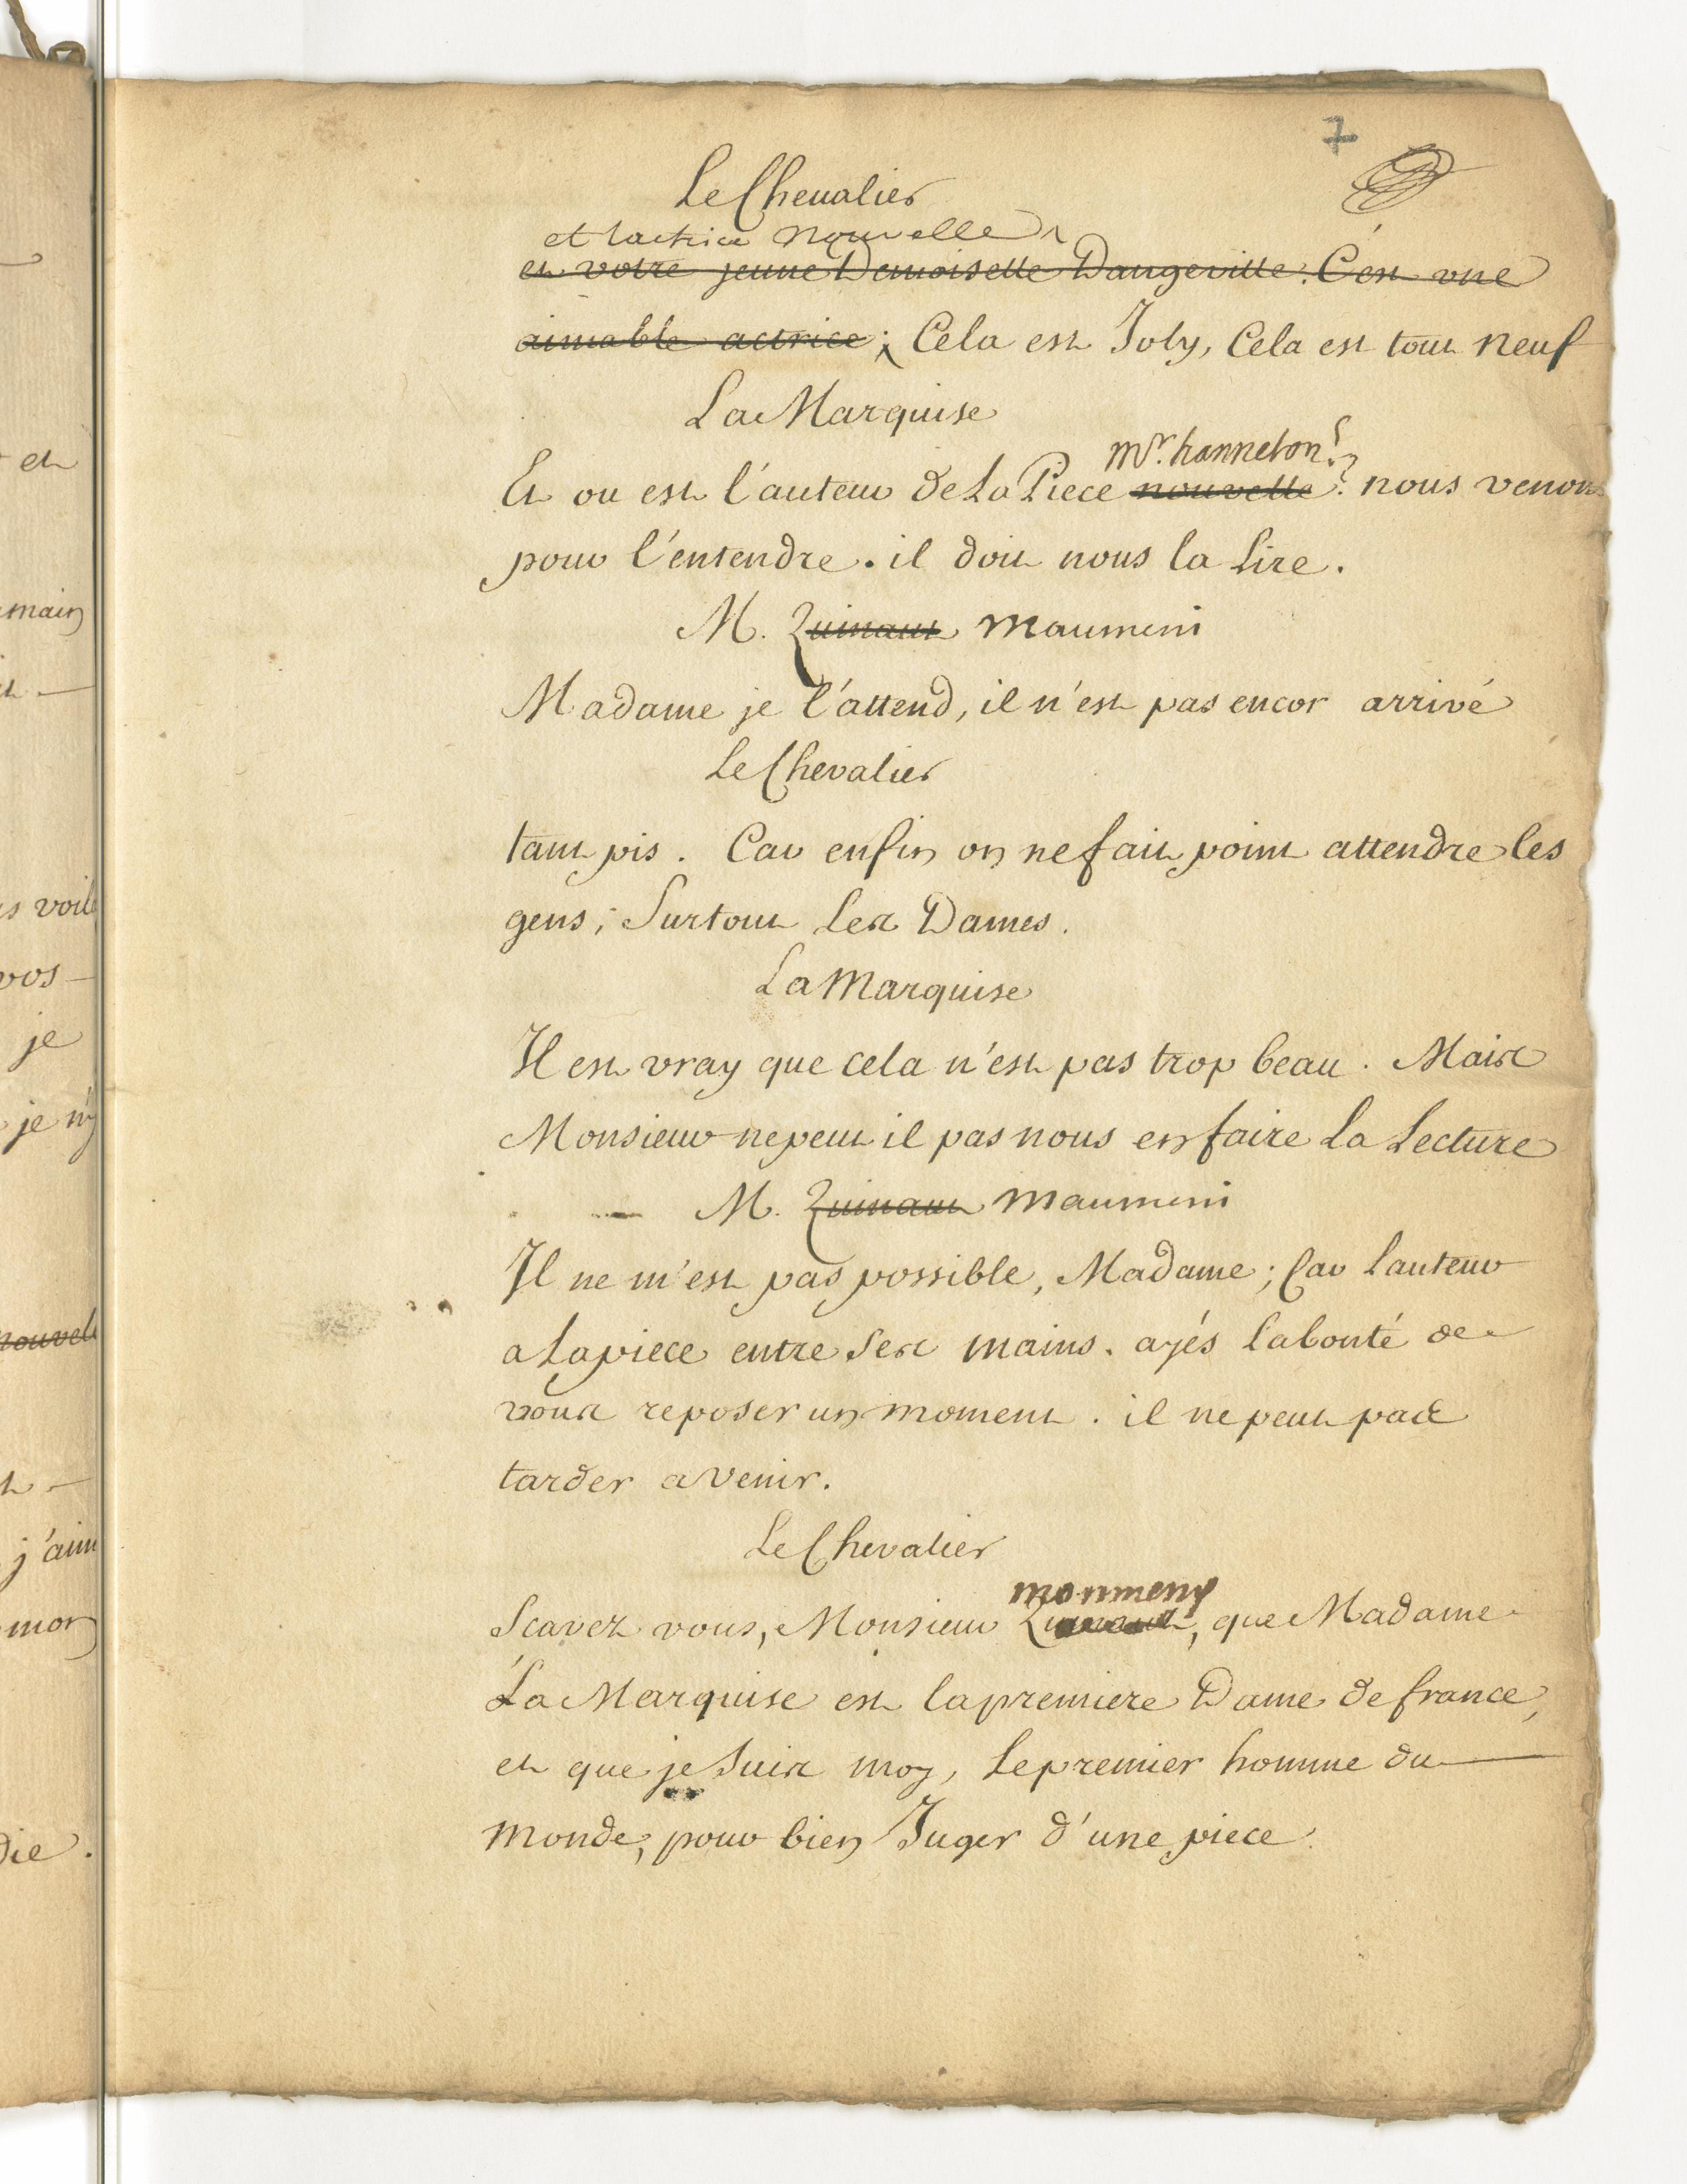 7
Le Chevalier
et lactrice nouvelle
et votre jeune Demoiselle Dangeville. C'est une
aimable actrice; Cela est Joly, Cela est tout neuf
La Marquise
mr. hanneton?
Et ou est l'auteur de La Piece nouvelle? nous venons
pour l'entendre. il doit nous la Lire.
M. Quinaut Maumeni
Madame je l'attend, il n'est pas encor arrivé
Le Chevalier
tant pis. Car enfin on ne fait point attendre les
gens; Surtout Les Dames.
La Marquise
Il est vray que cela n'est pas trop beau. Mais
Monsieur ne peut il pas nous en faire La Lecture
M. Quinaut Maumeni
Il ne m'est pas possible, Madame; Car Lauteur
a La piece entre Ses mains. ayés La bonté de
vous reposer un moment. il ne peut pas
tarder a venir.
Le Chevalier
monmeny
Scavez vous, Monsieur Quinaut, que Madame
La Marquise est la premiere Dame de france,
et que je Suis moy, Le premier homme du
monde, pour bien Juger d'une piece
et
main
voil
vos
je
je n'y
nouvel
j'aim
mon
die.